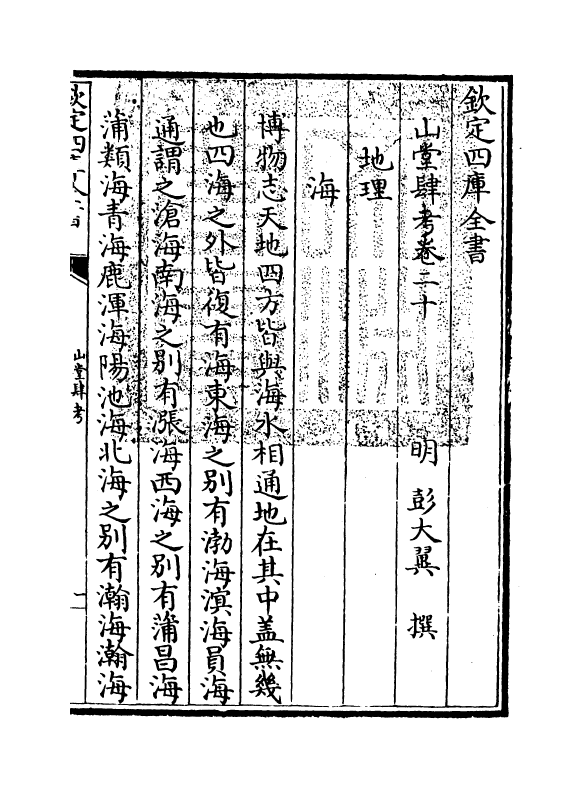 欽定四庫全書
山堂肆考卷二十
明 彭大翼 撰
地理
海
博物志天地四方皆與海水相通地在其中蓋無幾
也四海之外皆復有海東海之别有渤海溟海員海
通謂之滄海南海之别有漲海西海之别有蒲昌海
蒲類海青海鹿渾海陽池海北海之别有瀚海瀚海
山堂肆考